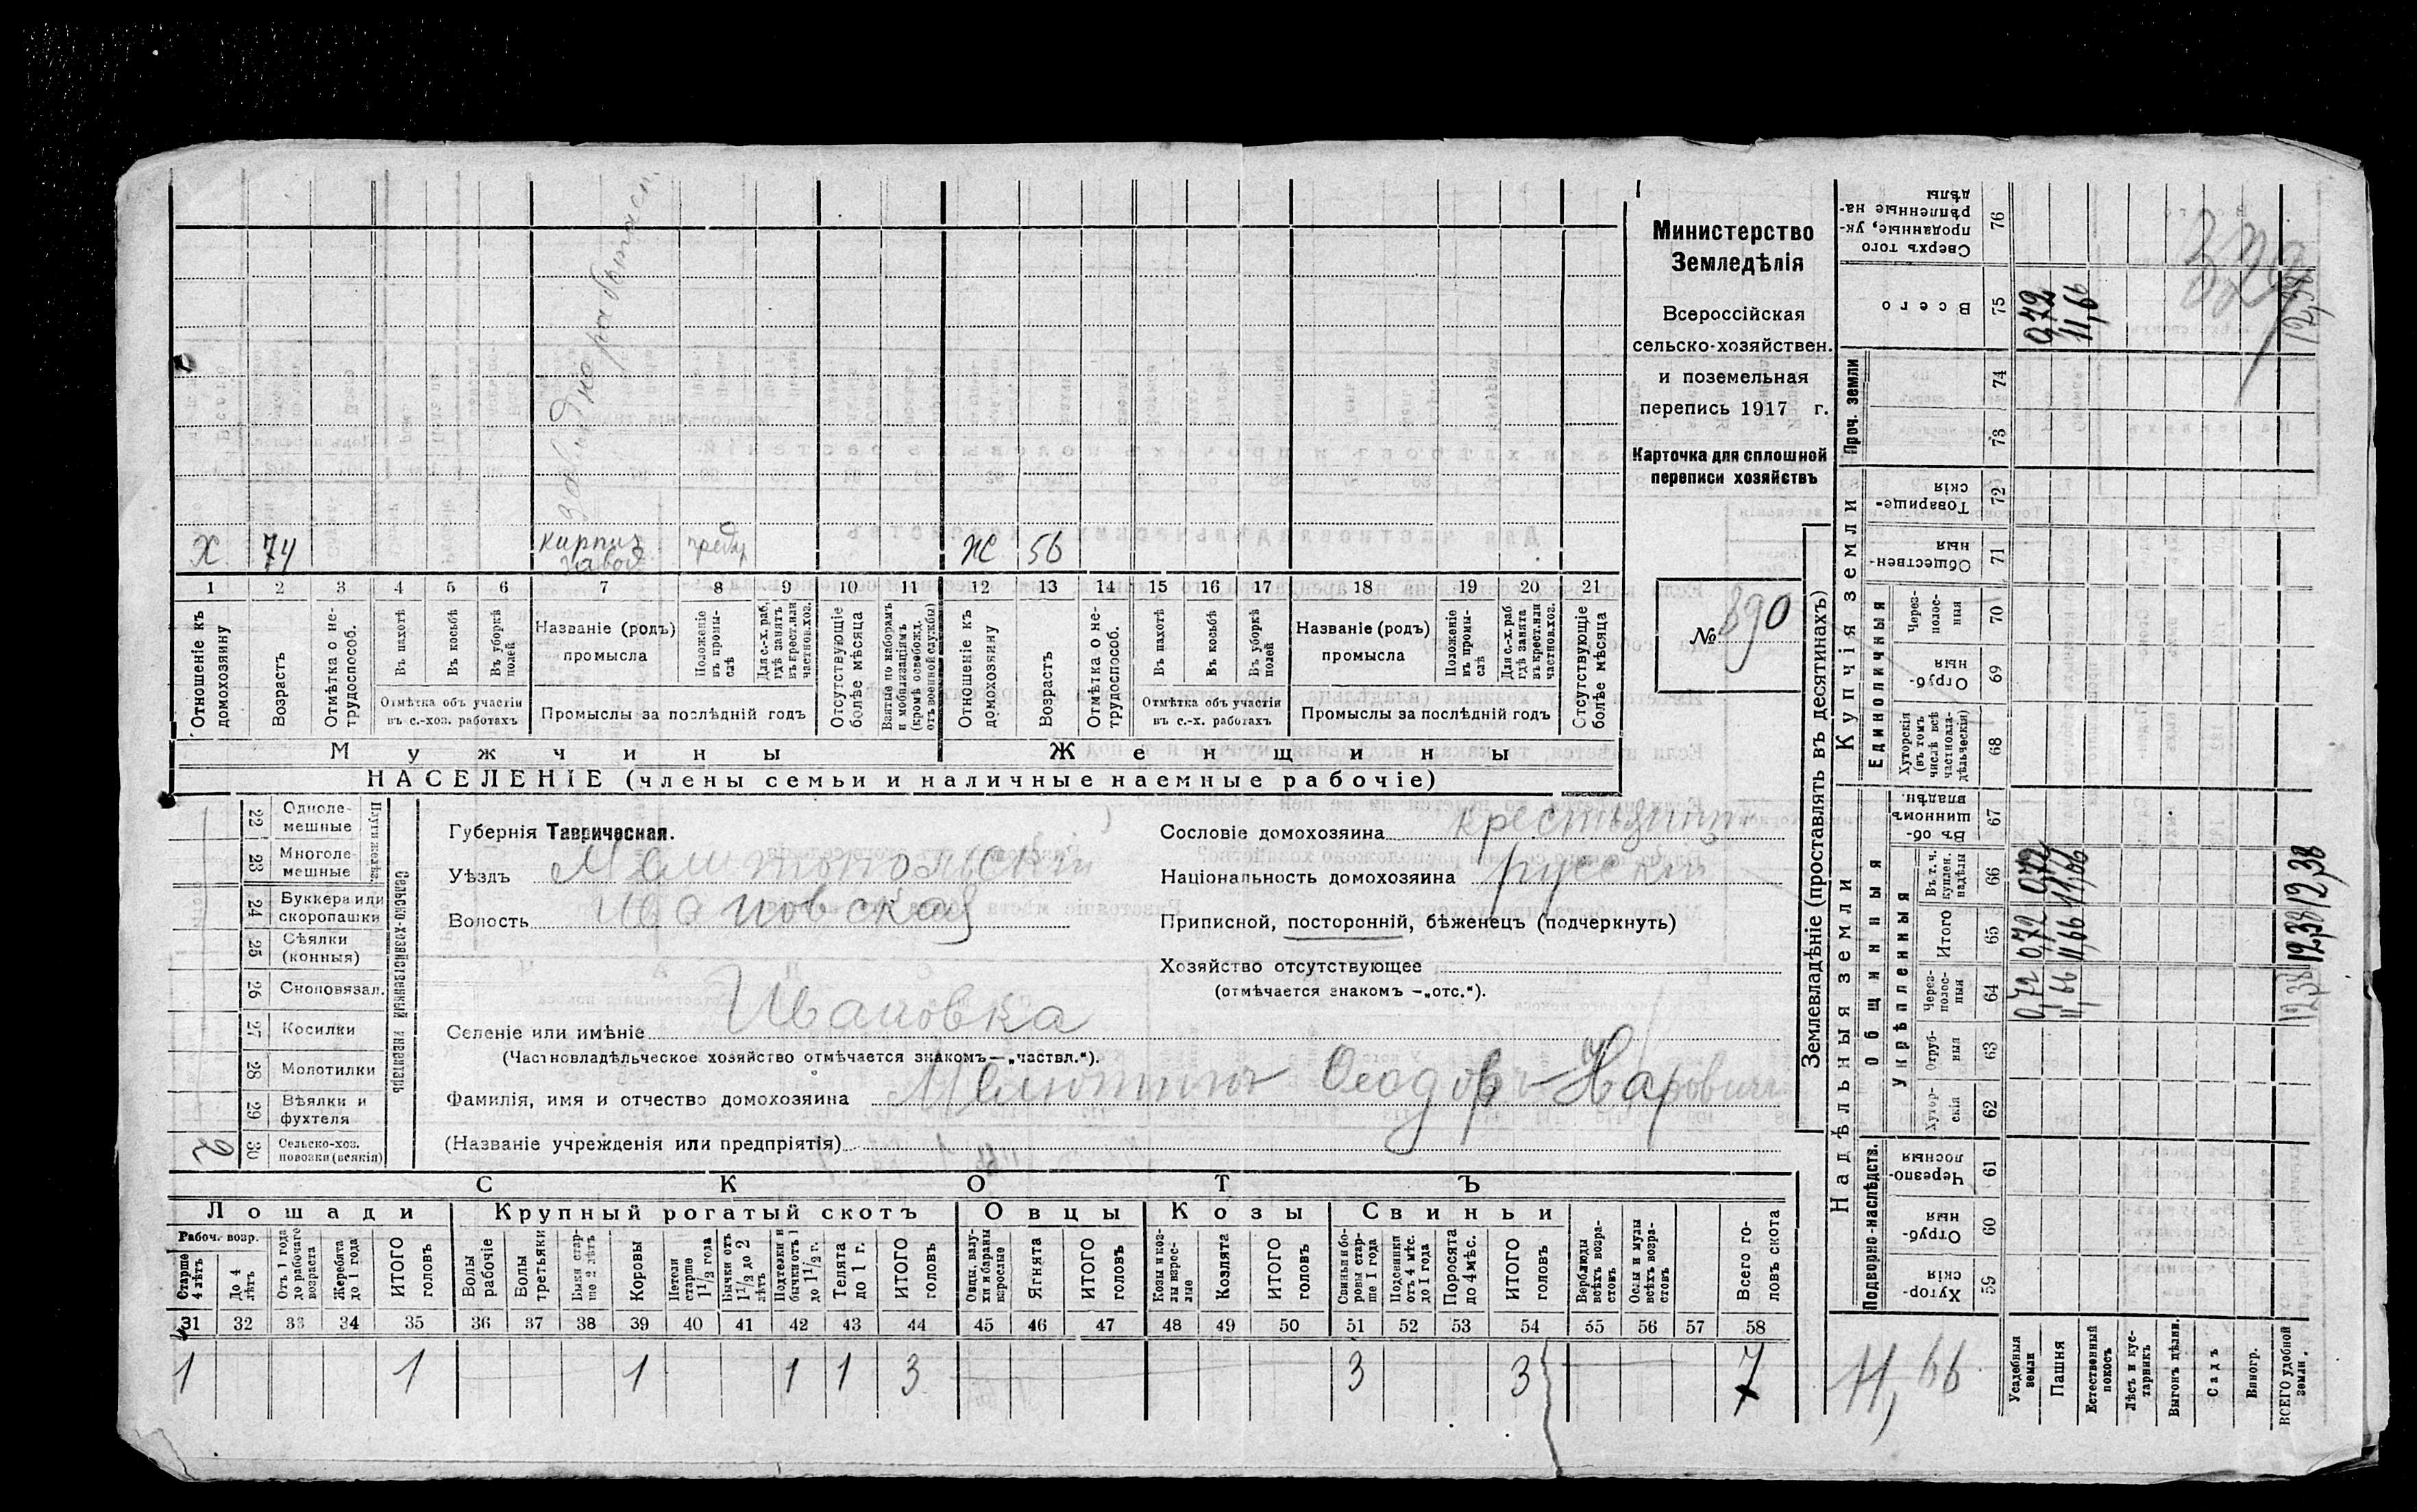 Министерство
Земледѣлія
Всероссійская
сельско-хозяйствен.
и поземельная
перепись 1917 г.
Карточка для сплошной
переписи хозяйствъ
№ 890
Х 74 кирпич. завод Ж 56
1 2 3 4 5 6 7 8 9 10 11 12 13 14 15 16 17 18 19 20 21
Отношеніе къ домохозяину
Возрастъ
Отмѣтка о не-трудоспособ.
Въ пахотѣ
Въ косьбѣ
Въ уборкѣ полей
Отмѣтка объ участіи
въ с.-хоз. работахъ
Названіе (родъ)
промысла
Положеніе въ промы-слѣ
Для с.-х. раб. гдѣ занятъ въ крест. или частнов. хоз.
Промыслы за послѣдній годъ
Отсутствующіе болѣе мѣсяца
Взятые по наборамъ и мобилизаціямъ (кромѣ освобожд. отъ военной службы)
Отношеніе къ домохозяину
Возрастъ
Отмѣтка о не-трудоспособ.
Въ пахотѣ
Въ косьбѣ
Въ уборкѣ полей
Отмѣтка объ участіи
въ с.-х. работахъ
Названіе (родъ)
промысла
Положеніе въ промы-слѣ
Для с.-х. раб. гдѣ занята въ крест. или частнов. хоз.
Промыслы за послѣдній годъ
Отсутствующіе болѣе мѣсяца
Мужчины Женщины
НАСЕЛЕНІЕ (члены семьи и наличные наемные рабочіе)
Сельско-хозяйственный инвентарь
22 Одноле-мешные
23 Многоле-мешные
24 Буккера или скоропашки
25 Сѣялки (конныя)
26 Сноповязал.
27 Косилки
28 Молотилки
29 Вѣялки и фухтеля
30 Сельско-хоз. повозки (всякія) 2
Губернія Таврическая.
Уѣздъ Мелитопольскій
Волость Ивановская
Селеніе или имѣніе Ивановка
(Частновладѣльческое хозяйство отмѣчается знакомъ—„частвл.“).
Фамилія, имя и отчество домохозяина Малютинъ Ѳеодоръ
(Названіе учрежденія или предпріятія)
Сословіе домохозяина крестьянинъ
Національность домохозяина русскій
Приписной, посторонній, бѣженецъ (подчеркнуть)
Хозяйство отсутствующее
(отмѣчается знакомъ —„отс.“).
СКОТЪ
Лошади Крупный рогатый скотъ Овцы Козы Свиньи
Рабоч. возр.
Старше 4 лѣтъ
До 4 лѣтъ
Отъ 1 года до рабочаго возраста
Жеребята до 1 года
ИТОГО головъ
Волы рабочіе
Волы третьяки
Быки стар-ше 2 лѣтъ
Коровы
Нетели старше 1 1/2 года
Бычки отъ 1 1/2 до 2 лѣтъ
Подтелки и бычки отъ 1 до 1 1/2 г.
Телята до 1 г.
ИТОГО головъ
Овцы, валу-хи и бараны взрослые
Ягнята
ИТОГО головъ
Козы и коз-лы взрос-лые
Козлята
ИТОГО головъ
Свиньи и бо-ровы стар-ше 1 года
Подсвинки отъ 4 мѣс. до 1 года
Поросята до 4 мѣс.
ИТОГО головъ
Верблюды всѣхъ возра-стовъ
Ослы и мулы всѣхъ возра-стовъ
Всего го-ловъ скота
31 32 33 34 35 36 37 38 39 40 41 42 43 44 45 46 47 48 49 50 51 52 53 54 55 56 57 58
1 1 1 1 1 3 3 3 7
Землевладѣніе (проставлять въ десятинахъ)
Надѣльныя земли
Купчія земли
Проч. земли
Подворно-наслѣдств.
Общинныя
Укрѣпленныя
Единоличныя
59 Хутор-скія
60 Отруб-ныя
61 Черезпо-лосныя
62 Хутор-скія
63 Отруб-ныя
64 Через-полос-ныя
65 Итого
66 Въ т. ч. куплен. надѣлы
67 Въ об-щинномъ владѣн.
68 Хуторскія (въ томъ числѣ всѣ частновла-дѣльческія)
69 Отруб-ныя
70 Через-полос-ныя
71 Обществен-ныя
72 Товарище-скія
73
74
75 Всего
76 Сверхъ того проданные, ук-рѣпленные на-дѣлы
Усадебныя земли 0,72 0,72 0,72 0,72
Пашня 11,66 11,66 11,66 11,66
Естественный покосъ
Лѣсъ и кус-тарникъ
Выгонъ цѣлин.
Садъ
Виногр.
ВСЕГО удобной земли. 12,38 12,38 12,38 12,38
11,66